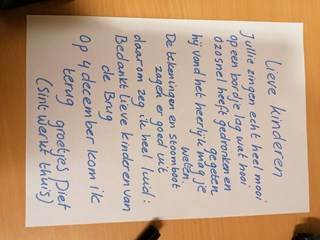 Lieve kinderen
Jullie zingen echt heel mooi
op een bordje lag wat hooi
Ozosnel heeft gedronken en
gegeten
hij vond het heerlijk mag je
weten.
De tekeningen en stoomboot
zagen er goed uit
daarom zeg ik heel luid:
Bedankt lieve kinderen van
de Brug
Op 4 december kom ik
terug groetjes Piet
(Sint werkt thuis)